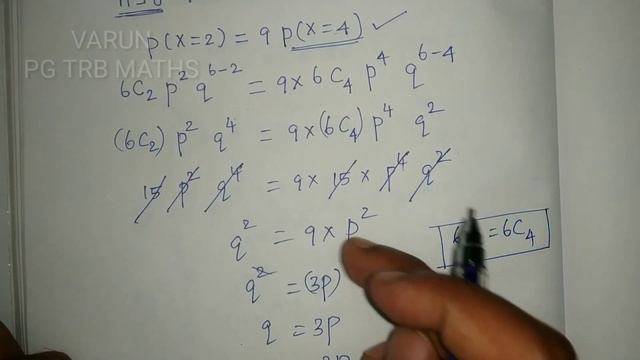 VARUN
PG TRB MATHS
p(x=2) = 9 p(x=4) ✓
6C₂ p² q⁶⁻² = 9×6C₄ p⁴ q⁶⁻⁴
(6C₂) p² q⁴ = 9×(6C₄) p⁴ q²
15 p² q⁴ = 9× 15 × p⁴ q²
q² = 9×p²
6 = 6C₄
q² = (3p)
q = 3p